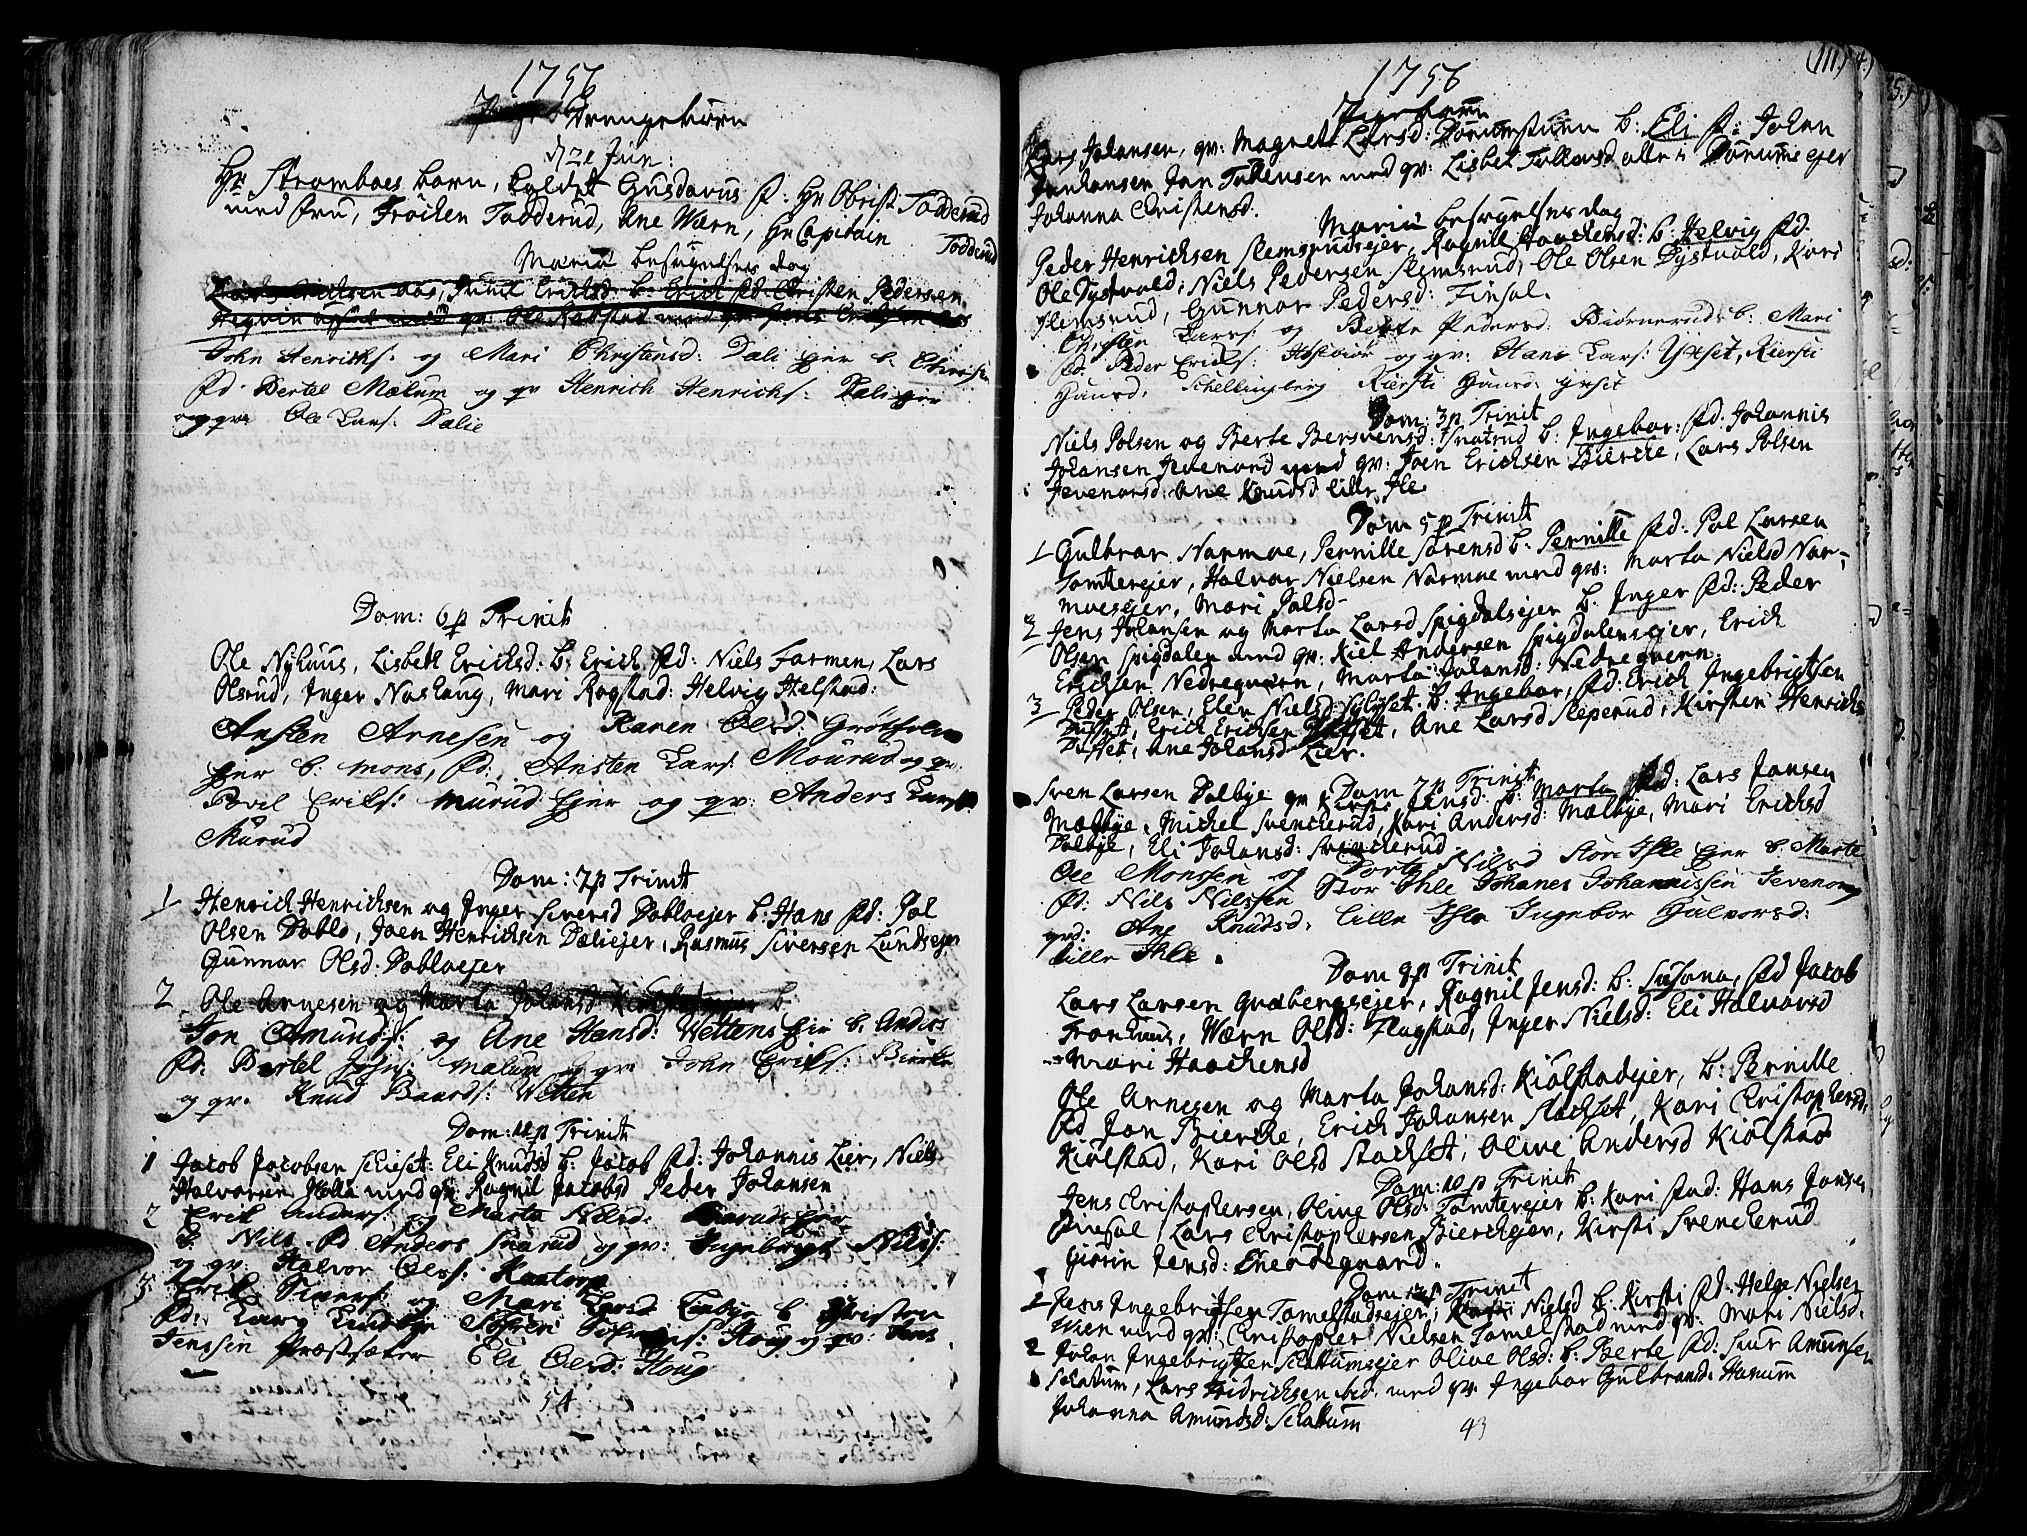 1756
Drengebørn
d 21 Jun:
Hr Stromboes barn, kaldet Gusdavus Fd: Hr Obrist Todderud
med Fru, Frøiken Todderud, Ane Wærn, Hr Capitain
Todderud
Mariæ besøgelses dag
Ericksen Aas, Erichsd: b. Erich Fd: Christen Pedersen
med qv: Ole Rogstad med qv Jens
John Henrichs: og Mari Christensd: Dæli Ejer b. Christen
Fd. Bertel Mælum og qv Henrich Henrichs: Dæli Ejer
og qv Ole Lars: Dælie
Dom: 6 p Trinit
Ole Nyhuus, Lisbeth Ericksd: b: Erich Fd: Niels Farmen, Lars
Olsrud, Inger Nashaug, Mari Rogstad: Helvig Helstad:
Ansten Arnesen og Karen Olsd: Grøtholm
Ejer b: Mons, Fd: Ansten Lars: Mourud og qv:
Povel Eriks: Murud Ejer og qv: Anders Lars:
Murud
Dom: 7 p Trinit
1 Henrich Henrichsen og Inger Siversd Dobloejer b: Hans Fd: Pol
Olsen Doblo, Joen Henrichsen Dæliejer, Rasmus Siversen Lundsejer
Gunnor Olsd: Dobloejer
2 Ole Arnesen og Marta Johansd Kiølstadejer b.
Jon Amunds: og Ane Hansd: Wettens Ejer b. Anders
Fd. Bertel Johns: Mælum og qv John Eriks: Bierke
og qv. Knud Baards: Wetten
Dom: 10 p Trinit
1 Jacob Jacobsen Scheset: Eli Knudsd b: Jacob Fd: Johannis Lier, Niels
Halvorsen Holla med qv Ragnil Jacobsd Peder Johansen
2 Erik Anders: og Marta Nilsd:
b. Nils Fd Anders Snarud og qv: Ingebrigt Nils:
og qv. Halvor Ols: Kaatorp
3 Erik Sivers: og Mari Larsd Lundbye b. Christen
Fd: Lars Lundbye Søfren Houg og qv: Jens
Jenssen Præstsæter Eli Olsd: Houg
54

1756 (111)
Pigebørn
Lars Johansen, qv: Magnett Larsd: b: Eli Fd: John
Johansen Jan Tollensen med qv: Lisbet Tollensd alle i ejer
Johanna Christensd.
Mariæ besøgelses dag
Peder Henrichsen Slemsrudsejer, Ragnil Haachensd: b: Helvig Fd.
Ole Dystvold, Niels Pedersen Slemsrud, Ole Olsen Dystvold, Kari
Slemsrud, Gunnor Pedersd: Finsol.
Christen Lars: og Berte Pedersd: Biørnerud b: Mari
Fd. Peder Eriks: og qv: Hans Lars: Ytset, Kiersti
Gunrd. Schellingberg Kiersti Gunrd: Ytset
Dom: 3 p Trinit
Niels Polsen og Berte Bersvensd: Snatrud b: Ingebor: Fd: Johannis
Johansen Jevenord med qv: Joen Erichsen Bierche, Lars Polsen
Jevenorsd: Ane Knudsd Lille Ile.
Dom 5 p Trinit
1 Gulbrar Narmoe, Pernille Sørensd b: Pernille Fd: Pol Larsen
Tomterejer, Halvor Nielsen Narmoe med qv: Marta Nielsd Nar-
moesejer, Mari Polsd.
2 Jens Johansen og Marta Larsd Spigdalsejer b. Inger Fd: Peder
Olsen Spigdalen med qv: Kiel Andersen Spigdalensejer, Erich
Erichsen Nedreqvern, Marta Johansd: Nedreqvern.
3 Peder Olsen, Elen Nielsd b: Ingebor, Fd: Erich Ingebrigtsen
Dufset, Erich Erichsen Dufset, Ane Larsd Sleperud, Kirsten Henrichs
Dufset, Ane Johansd Lier.
Dom 7 p Trinit
Sven Larsen Dolbye qv Jensd: b. Marta Fd: Lars Jansen
Mælbye, Michel Svencherud, Kari Andersd: Mælbye, Mari Erichsd
Dolbye, Eli Johansd: Svencherud
Ole Monssen og Dorte Nilsd Stor Ihle Ejer b. Marte
Fd. Nils Nilssen Stor Ihle Johanes Johannissen Jevenorg
qvd: Ane Knudsd: Lille Ihle Ingebor Hulvorsd:
Lille Ihle.
Dom 9 p Trinit
Lars Larsen Grobergsejer, Ragnil Jensd: b: Susana, Fd Jacob
Fronhuus, Wærn Olsd: Flagstad, Inger Nielsd: Eli Halvorsd
Mari Haachensd
Ole Arnesen og Marta Johansd: Kiølstadejer, b: Pernille
Fd Jan Bierche, Erich Johansen Stachset, Kari Christophersd:
Kiølstad, Kari Olsd Stachset, Olive Andersd Kiølstad
Dom: 10 p Trinit
Jens Christophersen, Olive Olsd: Tomterejer b: Kari Fad: Hans Jonsen
Finsol, Lars Christophersen Bierchejer, Kirsti Svencherud
Giørin Jensd: Eneødegaard.
Dom Trinit
1 Jens Ingebrigtsen Tomelstadsejer, Nielsd b: Kirsti Fd: Helge Nielsen
Meen med qv: Christopher Nielsen Tomelstad med qv: Mari Nielsd:
2 Johan Ingebrigtsen Schattumsejer Olive Olsd: b: Berte Fd: Siur Amunsen
Schattum, Lars Fridrichsen ibid: med qv. Ingebor Gulbransd: Hasnum
Johanna Amundsd: Schattum
43